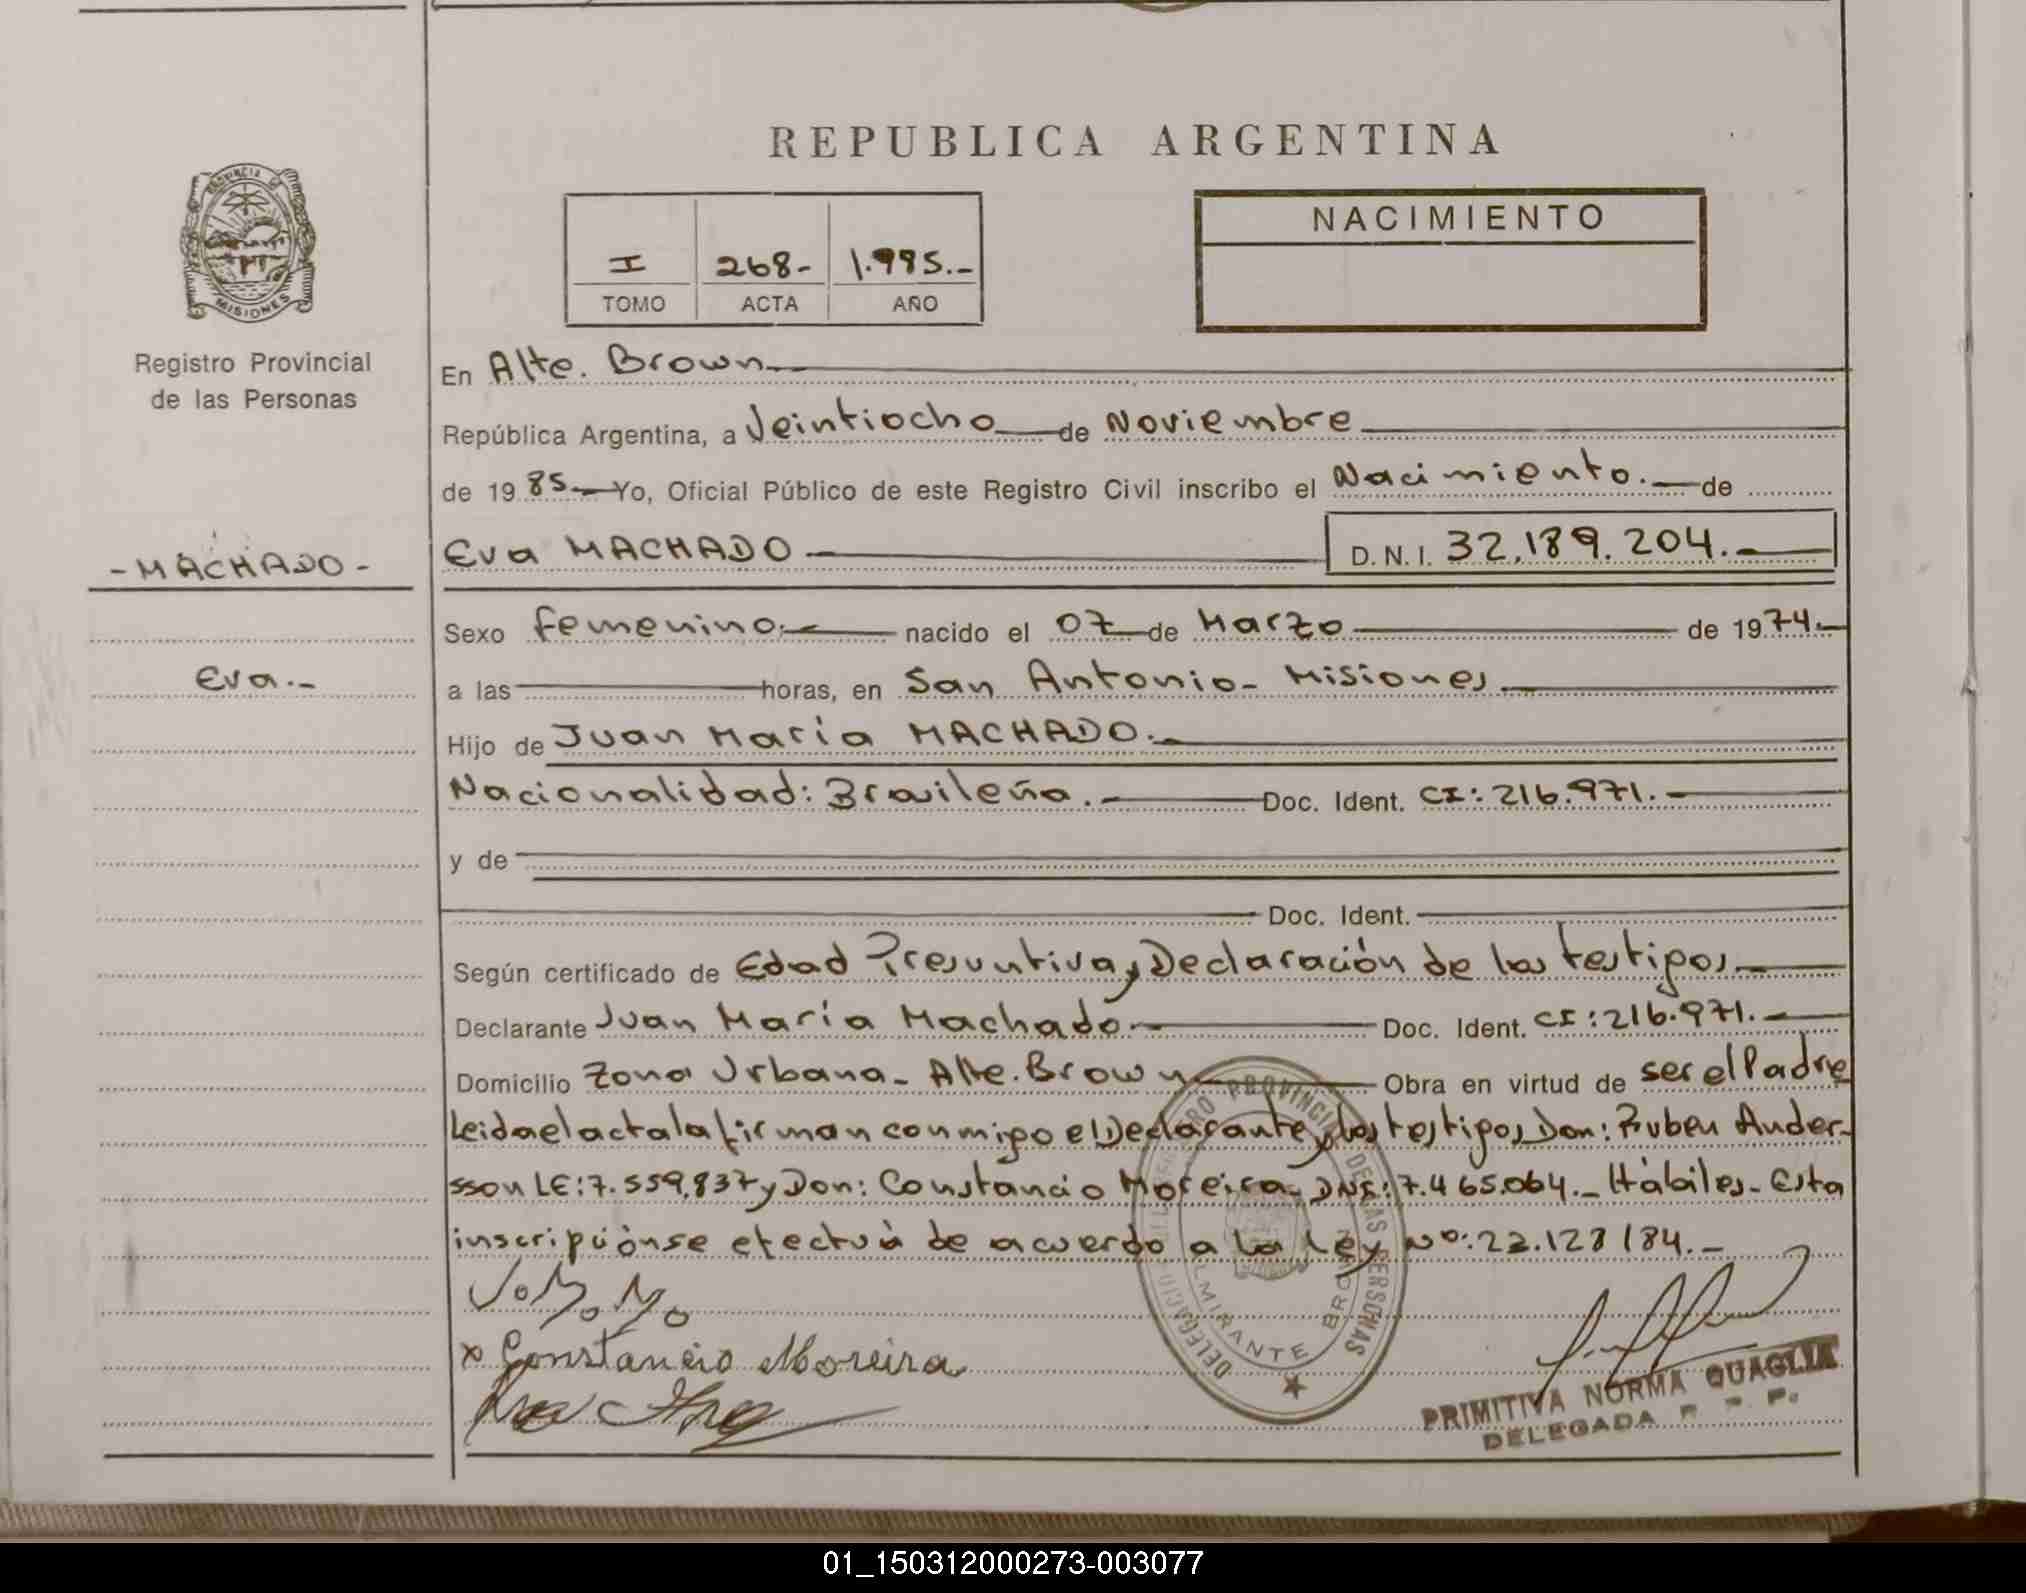 REPUBLICA ARGENTINA
PROVINCIA DE
MISIONES
I 268- 1.985.-
TOMO ACTA AÑO
NACIMIENTO
Registro Provincial
de las Personas
En Alte. Brown.
República Argentina, a Veintiocho de Noviembre
de 1985.- Yo, Oficial Público de este Registro Civil inscribo el Nacimiento.- de
- MACHADO -
Eva MACHADO D.N.I. 32.189.204.-
Sexo femenino.- nacido el 07 de Marzo de 1974.-
Eva.-
a las horas, en San Antonio - Misiones
Hijo de Juan María MACHADO.-
Nacionalidad: Brasileña.- Doc. Ident. CI: 216.971.-
y de
Doc. Ident.
Según certificado de Edad Presuntiva y Declaración de los testigos.
Declarante Juan María Machado.- Doc. Ident. CI: 216.971.-
Domicilio Zona Urbana - Alte. Brown Obra en virtud de ser el Padre
Leida el acta la firman conmigo el Declarante y los testigos Don: Ruben Ander-
sson LE: 7.559.837 y Don: Constancio Moreira - DNI: 7.465.064.- Hábiles - Esta
inscripción se efectuó de acuerdo a la Ley Nº: 22.128/84.-
x Constancio Moreira
DELEGACION REGISTRO PROVINCIAL DE LAS PERSONAS
ALMIRANTE BROWN
PRIMITIVA NORMA QUAGLIA
DELEGADA R. P. P.
01_150312000273-003077